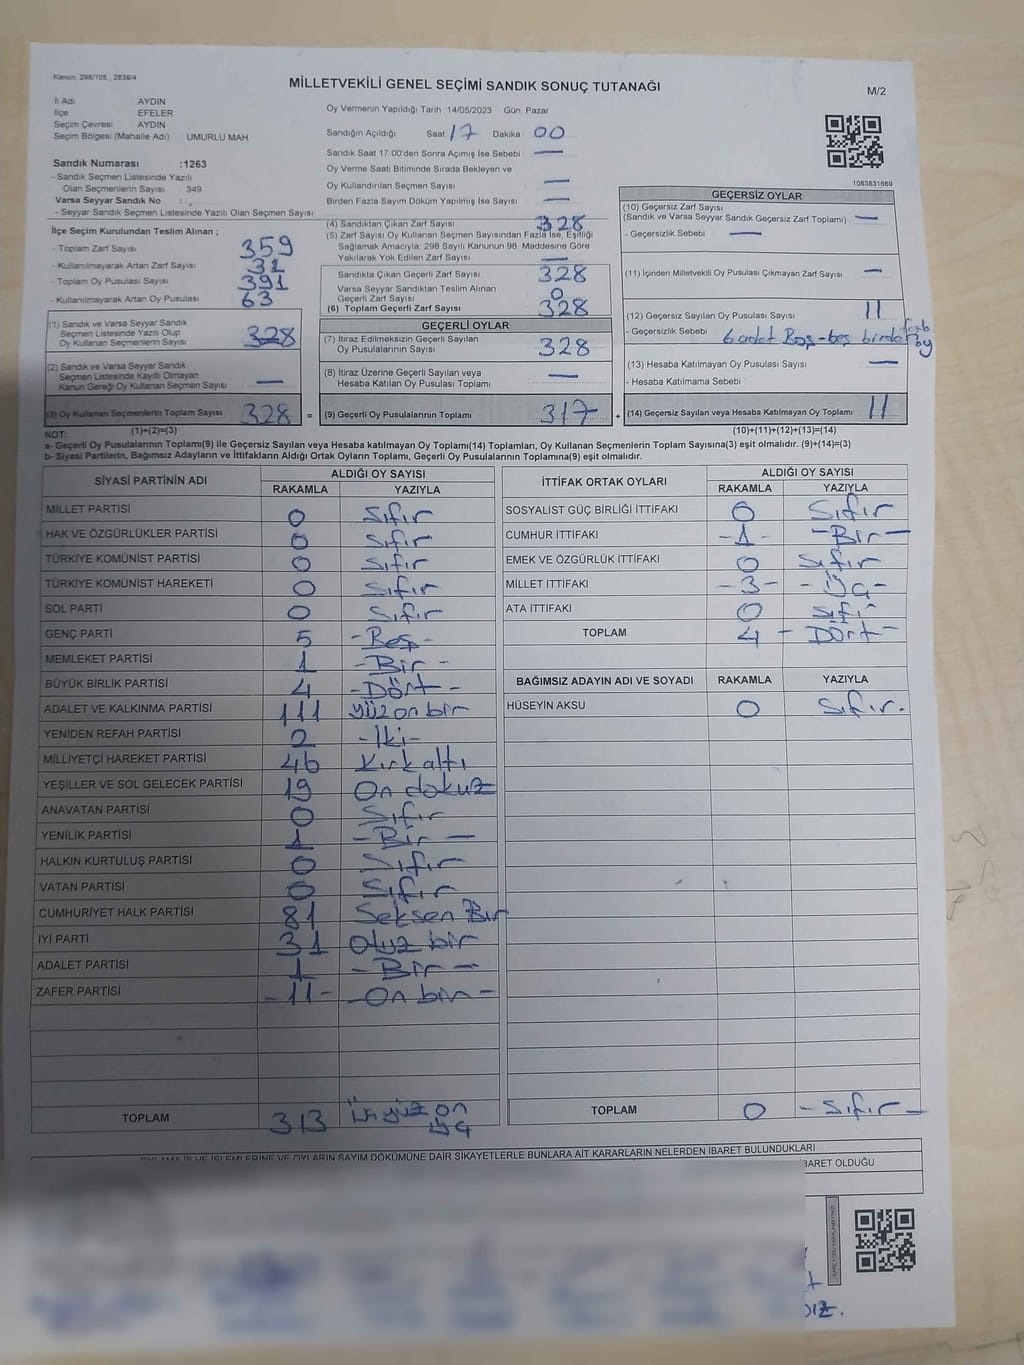 Kanun: 298/105 , 2839/4
MİLLETVEKİLİ GENEL SEÇİMİ SANDIK SONUÇ TUTANAĞI
M/2
İl Adı AYDIN
İlçe EFELER
Seçim Çevresi AYDIN
Seçim Bölgesi (Mahalle Adı) UMURLU MAH
Sandık Numarası :1263
- Sandık Seçmen Listesinde Yazılı
Olan Seçmenlerin Sayısı : 349
Varsa Seyyar Sandık No :
- Seyyar Sandık Seçmen Listesinde Yazılı Olan Seçmen Sayısı
İlçe Seçim Kurulundan Teslim Alınan ;
- Toplam Zarf Sayısı 359
- Kullanılmayarak Artan Zarf Sayısı 31
- Toplam Oy Pusulası Sayısı 391
- Kullanılmayarak Artan Oy Pusulası 63
(1) Sandık ve Varsa Seyyar Sandık
Seçmen Listesinde Yazılı Olup
Oy Kullanan Seçmen Sayısı 328
(2) Sandık ve Varsa Seyyar Sandık
Seçmen Listesinde Kayıtlı Olmayan
Kanun Gereği Oy Kullanan Seçmen Sayısı —
(3) Oy Kullanan Seçmenlerin Toplam Sayısı 328 =
(1)+(2)=(3)
Oy Vermenin Yapıldığı Tarih 14/05/2023 Gün: Pazar
Sandığın Açıldığı Saat 17 Dakika 00
Sandık Saat 17:00'den Sonra Açımış İse Sebebi —
Oy Verme Saati Bitiminde Sırada Bekleyen ve
Oy Kullandırılan Seçmen Sayısı —
Birden Fazla Sayım Döküm Yapılmış İse Sayısı —
(4) Sandıktan Çıkan Zarf Sayısı 328
(5) Zarf Sayısı Oy Kullanan Seçmen Sayısından Fazla İse, Eşitliği
Sağlamak Amacıyla: 298 Sayılı Kanunun 98. Maddesine Göre
Yakılarak Yok Edilen Zarf Sayısı —
Sandıkta Çıkan Geçerli Zarf Sayısı 328
Varsa Seyyar Sandıktan Teslim Alınan
Geçerli Zarf Sayısı 0
(6) Toplam Geçerli Zarf Sayısı 328
GEÇERLİ OYLAR
(7) İtiraz Edilmeksizin Geçerli Sayılan
Oy Pusulalarının Sayısı 328
(8) İtiraz Üzerine Geçerli Sayılan veya
Hesaba Katılan Oy Pusulası Toplamı —
(9) Geçerli Oy Pusulalarının Toplamı 317 +
1083831669
GEÇERSİZ OYLAR
(10) Geçersiz Zarf Sayısı
(Sandık ve Varsa Seyyar Sandık Geçersiz Zarf Toplamı) —
- Geçersizlik Sebebi —
(11) İçinden Milletvekili Oy Pusulası Çıkmayan Zarf Sayısı —
(12) Geçersiz Sayılan Oy Pusulası Sayısı 11
- Geçersizlik Sebebi 6 adet Boş-beş birden oy
(13) Hesaba Katılmayan Oy Pusulası Sayısı —
- Hesaba Katılmama Sebebi
(14) Geçersiz Sayılan veya Hesaba Katılmayan Oy Toplamı 11
(10)+(11)+(12)+(13)=(14)
NOT:
a- Geçerli Oy Pusulalarının Toplamı(9) ile Geçersiz Sayılan veya Hesaba katılmayan Oy Toplamı(14) Toplamları, Oy Kullanan Seçmenlerin Toplam Sayısına(3) eşit olmalıdır. (9)+(14)=(3)
b- Siyasi Partilerin, Bağımsız Adayların ve İttifakların Aldığı Ortak Oyların Toplamı, Geçerli Oy Pusulalarının Toplamına(9) eşit olmalıdır.
SİYASİ PARTİNİN ADI ALDIĞI OY SAYISI
RAKAMLA YAZIYLA
MİLLET PARTİSİ 0 Sıfır
HAK VE ÖZGÜRLÜKLER PARTİSİ 0 Sıfır
TÜRKİYE KOMÜNİST PARTİSİ 0 Sıfır
TÜRKİYE KOMÜNİST HAREKETİ 0 Sıfır
SOL PARTİ 0 Sıfır
GENÇ PARTİ 5 -Beş-
MEMLEKET PARTİSİ 1 -Bir-
BÜYÜK BİRLİK PARTİSİ 4 -Dört-
ADALET VE KALKINMA PARTİSİ 111 yüz on bir
YENİDEN REFAH PARTİSİ 2 -İki-
MİLLİYETÇİ HAREKET PARTİSİ 46 Kırk altı
YEŞİLLER VE SOL GELECEK PARTİSİ 19 On dokuz
ANAVATAN PARTİSİ 0 Sıfır
YENİLİK PARTİSİ 1 -Bir-
HALKIN KURTULUŞ PARTİSİ 0 Sıfır
VATAN PARTİSİ 0 Sıfır
CUMHURİYET HALK PARTİSİ 81 Seksen Bir
İYİ PARTİ 31 Otuz bir
ADALET PARTİSİ 1 -Bir-
ZAFER PARTİSİ -11- -On bir-
TOPLAM 313 Üçyüz on
üç
İTTİFAK ORTAK OYLARI ALDIĞI OY SAYISI
RAKAMLA YAZIYLA
SOSYALİST GÜÇ BİRLİĞİ İTTİFAKI 0 Sıfır
CUMHUR İTTİFAKI -1- -Bir-
EMEK VE ÖZGÜRLÜK İTTİFAKI 0 Sıfır
MİLLET İTTİFAKI -3- -Üç-
ATA İTTİFAKI 0 Sıfı
TOPLAM 4 -Dört-
BAĞIMSIZ ADAYIN ADI VE SOYADI RAKAMLA YAZIYLA
HÜSEYİN AKSU 0 Sıfır.
TOPLAM 0 -Sıfır-
OYLAMA İŞ VE İŞLEMLERİNE VE OYLARIN SAYIM DÖKÜMÜNE DAİR ŞİKAYETLERLE BUNLARA AİT KARARLARIN NELERDEN İBARET BULUNDUKLARI
BARET OLDUĞU